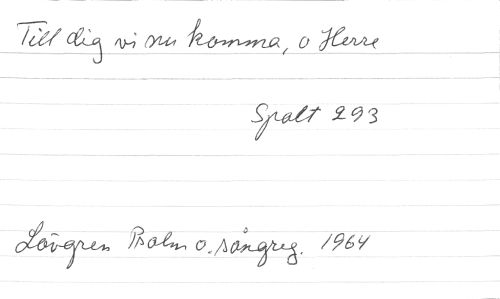 Till dig vi nu komma, o Herre
Spalt 293
Lövgren Psalm o. sångreg. 1964